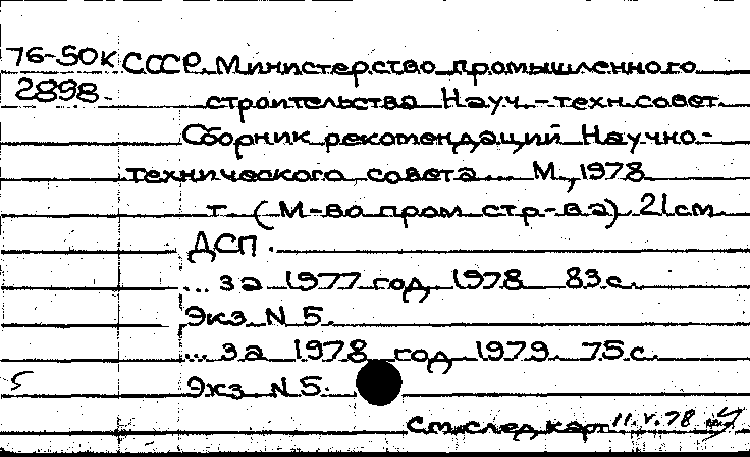 76-50к СССР. Министерство промышленного
2898. строительства Науч.-техн.совет.
Сборник рекомендаций Научно-
технического совета... М., 1978
т. (М-во пром. стр-ва) 21см.
ДСП.
... за 1977 год, 1978 83с.
Экз. N 5.
... за 1978 год 1979. 75с.
5 Экз. N 5.
См. след. карт 11.V.78